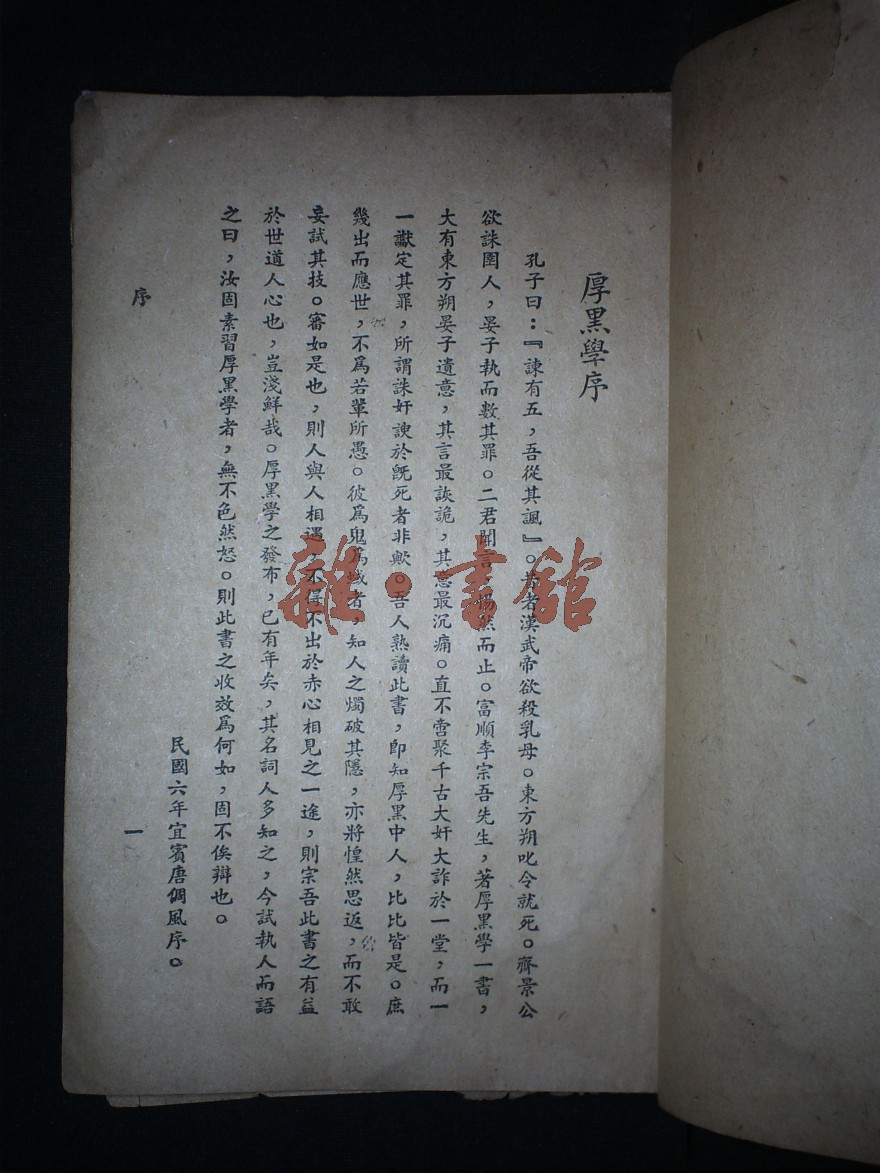 厚黑學序
孔子曰：『諫有五，吾從其諷』。昔者漢武帝欲殺乳母。東方朔叱令就死。齊景公
欲誅圉人，晏子執而數其罪。二君聞言，惕然而止。富順李宗吾先生，著厚黑學一書，
大有東方朔晏子遺意，其言最詼詭，其意最沉痛。直不啻聚千古大奸大詐於一堂，而一
一讞定其罪，所謂誅奸諛於旣死者非歟。吾人熟讀此書，卽知厚黑中人，比比皆是。庶
幾出而應世，不爲若輩所愚。彼爲鬼爲蜮者，知人之燭破其隱，亦將惶然思返，而不敢
妄試其技。審如是也，則人與人相遇，不得不出於赤心相見之一途，則宗吾此書之有益
於世道人心也，豈淺鮮哉。厚黑學之發布，已有年矣，其名詞人多知之，今試執人而語
之曰，汝固素習厚黑學者，無不色然怒。則此書之收效爲何如，固不俟辯也。
民國六年宜賓唐倜風序。
序
一
雜·書館